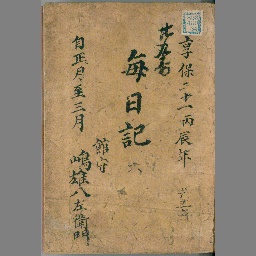 享保二十一丙辰年
毎日記
自正月至三月
館守
嶋雄八左衛門